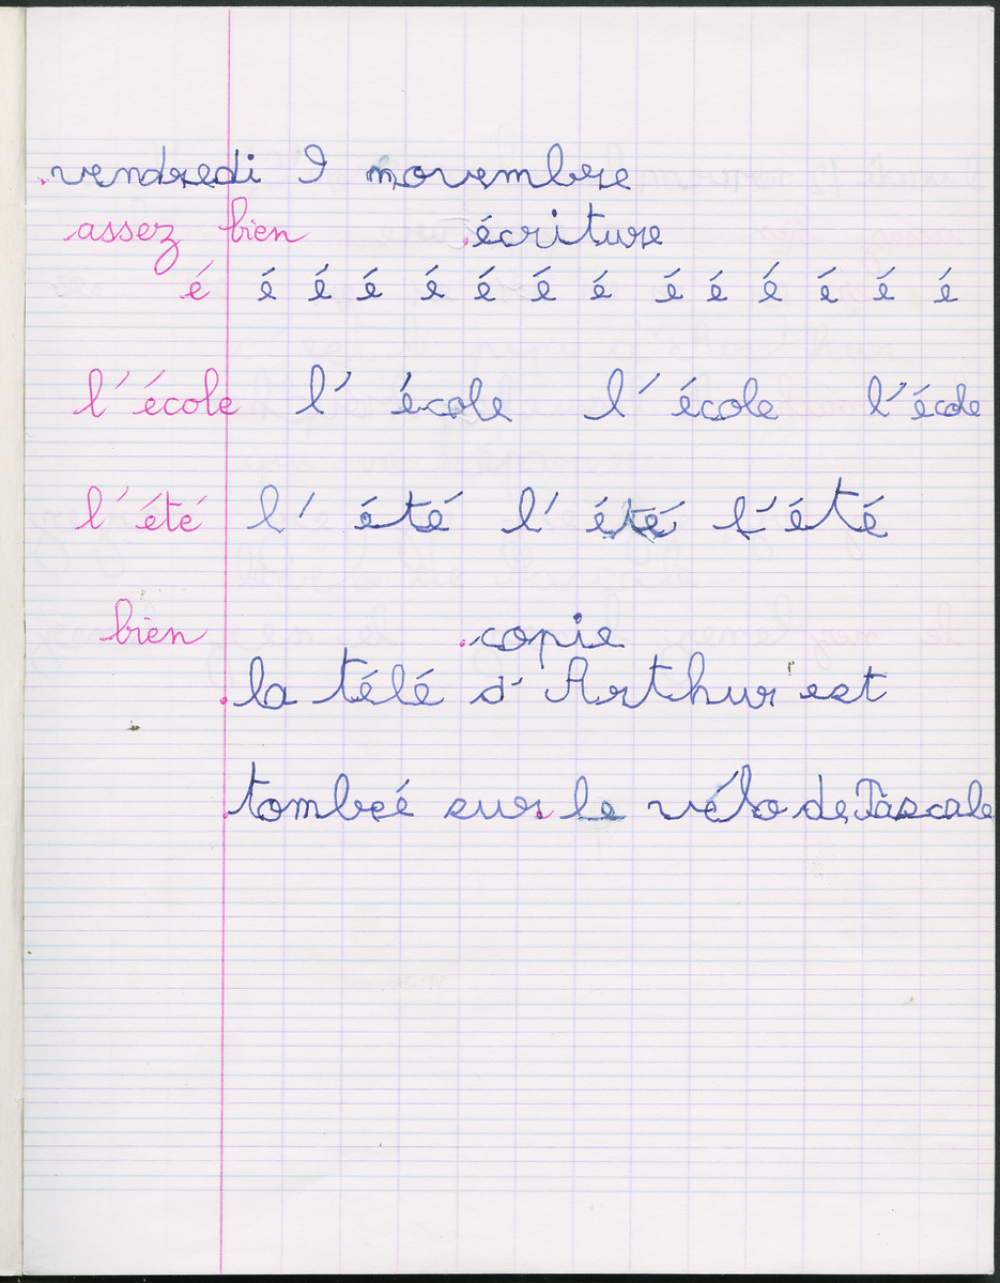 vendredi 9 novembre
assez bien écriture
é é é é é é é é é é é é é é
l'école l'école l'école l'école
l'été l'été l'été l'été
bien copie
la télé d'Arthur est
tombéé sur le vélo de Pascale